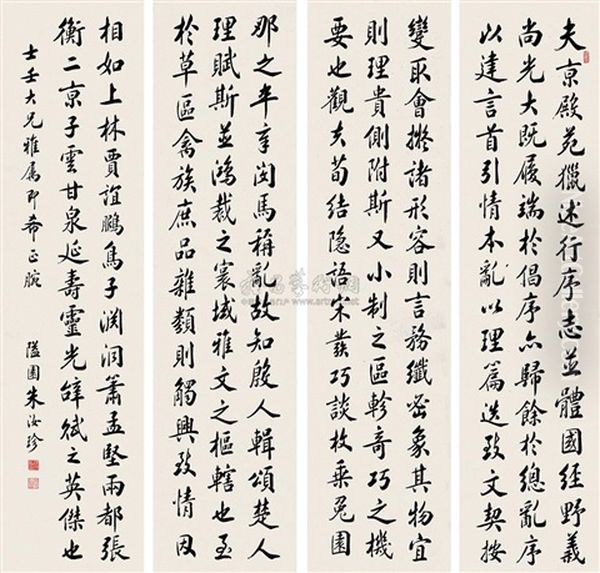 夫京殿苑獵述行序志並體國經野義
尚光大既履端於倡序亦歸餘於總亂序
以建言首引情本亂以理篇迭致文契按
那之卒章閔馬稱亂故知殷人輯頌楚人
理賦斯並鴻裁之寰域雅文之樞轄也至
於草區禽族庶品雜類則觸興致情因
變取會擬諸形容則言務纖密象其物宜
則理貴側附斯又小制之區畛奇巧之機
要也觀夫荀結隱語宋發巧談枚乘兔園
相如上林賈誼鵩鳥子淵洞簫孟堅兩都張
衡二京子雲甘泉延壽靈光辭賦之英傑也
士壬大兄雅屬即希正腕
隘園朱汝珍